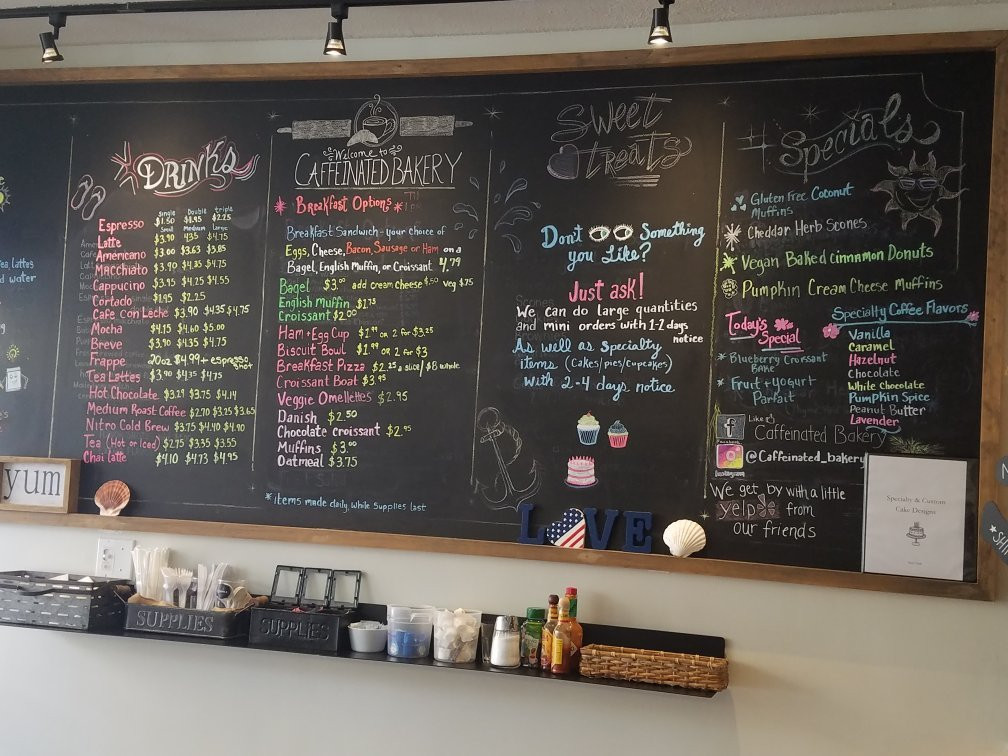 Tea, lattes
d water
yum
DRINKS
Single Double triple
Espresso $1.50 $1.95 $2.25
Small Medium Large
Latte $3.90 4.35 $4.75
Americano $3.00 $3.63 $3.85
Macchiato $3.90 $4.35 $4.75
Cappucino $3.95 $4.25 $4.55
Cortado $1.95 $2.25
Cafe con Leche $3.90 $4.35 $4.75
Mocha $4.15 $4.60 $5.00
Breve $3.90 $4.35 $4.75
Frappe 20oz $4.99 + espresso shot
Tea Lattes $3.90 $4.35 $4.75
Hot Chocolate $3.29 $3.75 $4.14
Medium Roast Coffee $2.70 $3.25 $3.65
Nitro Cold Brew $3.75 $4.40 $4.90
Tea (Hot or Iced) $2.75 $3.35 $3.55
Chai latte $4.10 $4.73 $4.95
Welcome to
CAFFEINATED BAKERY
Breakfast Options
Breakfast Sandwich - your choice of
Eggs, Cheese, Bacon, Sausage or Ham on a
Bagel, English Muffin, or Croissant 4.79
Bagel $3.00 add cream cheese $.50 veg $.75
English Muffin $1.75
Croissant $2.00
Ham + Egg Cup $1.99 or 2 for $3.25
Biscuit Bowl $1.99 or 2 for $3
Breakfast Pizza $2.25 a slice / $18 whole
Croissant Boat $3.95
Veggie Omellettes $2.95
Danish $2.50
Chocolate croissant $2.95
Muffins $3.00
Oatmeal $3.75
*items made daily while supplies last
Sweet
treats
Don't Something
you Like?
Just ask!
We can do large quantities
and mini orders with 1-2 days
notice
As well as specialty
items (Cakes/pies/cupcakes)
with 2-4 days notice
LOVE
# Specials
Gluten Free Coconut
Muffins
Cheddar Herb Scones
Vegan Baked cinnamon Donuts
Pumpkin Cream Cheese Muffins
Today's
Special
* Blueberry Croissant
Bake
* Fruit + Yogurt
Parfait
Specialty Coffee Flavors
Vanilla
Caramel
Hazelnut
Chocolate
White Chocolate
Pumpkin Spice
Peanut Butter
Lavender
Like us
f
Facebook
Caffeinated Bakery
Instagram
@Caffeinated_bakery
We get by with a little
yelp from
our friends
Specialty & Custom
Cake Designs
SUPPLIES
SUPPLIES